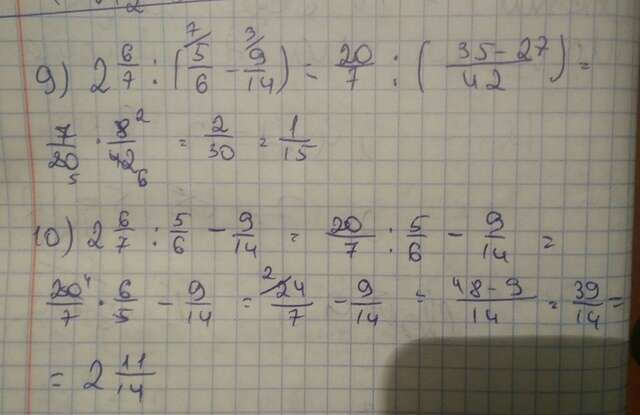 9) 2 6/7 : (5/6 ⁷ - 9/14 ³) = 20/7 : (35-27/42) =
7/20 5 · 8 2/42 6 = 2/30 = 1/15
10) 2 6/7 : 5/6 - 9/14 = 20/7 : 5/6 - 9/14 =
20 4/7 · 6/5 - 9/14 = 24/7 ² - 9/14 = 48-9/14 = 39/14 =
= 2 11/14